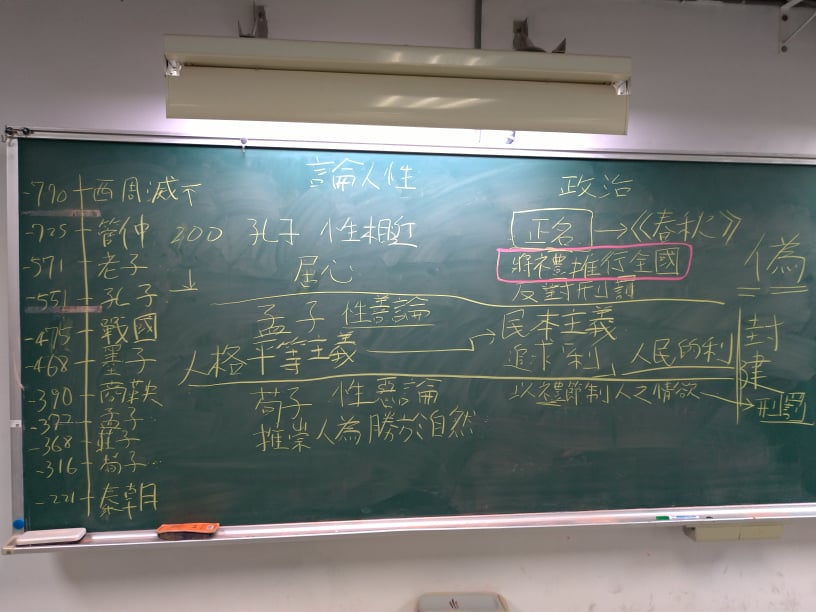 -770 西周滅亡
-725 管仲
-571 老子
-551 孔子
-475 戰國
-468 墨子
-390 商鞅
-377 孟子
-368 莊子
-316 荀子
-221 秦朝
論人性
200 孔子 性相近
↓
孟子 性善論
人格平等主義 →
荀子 性惡論
推崇人為勝於自然
政治
正名→《春秋》
將禮推行全國
反對刑罰
民本主義
追求「利」 人民的利
以禮節制人之情欲→刑罰
偽
封建